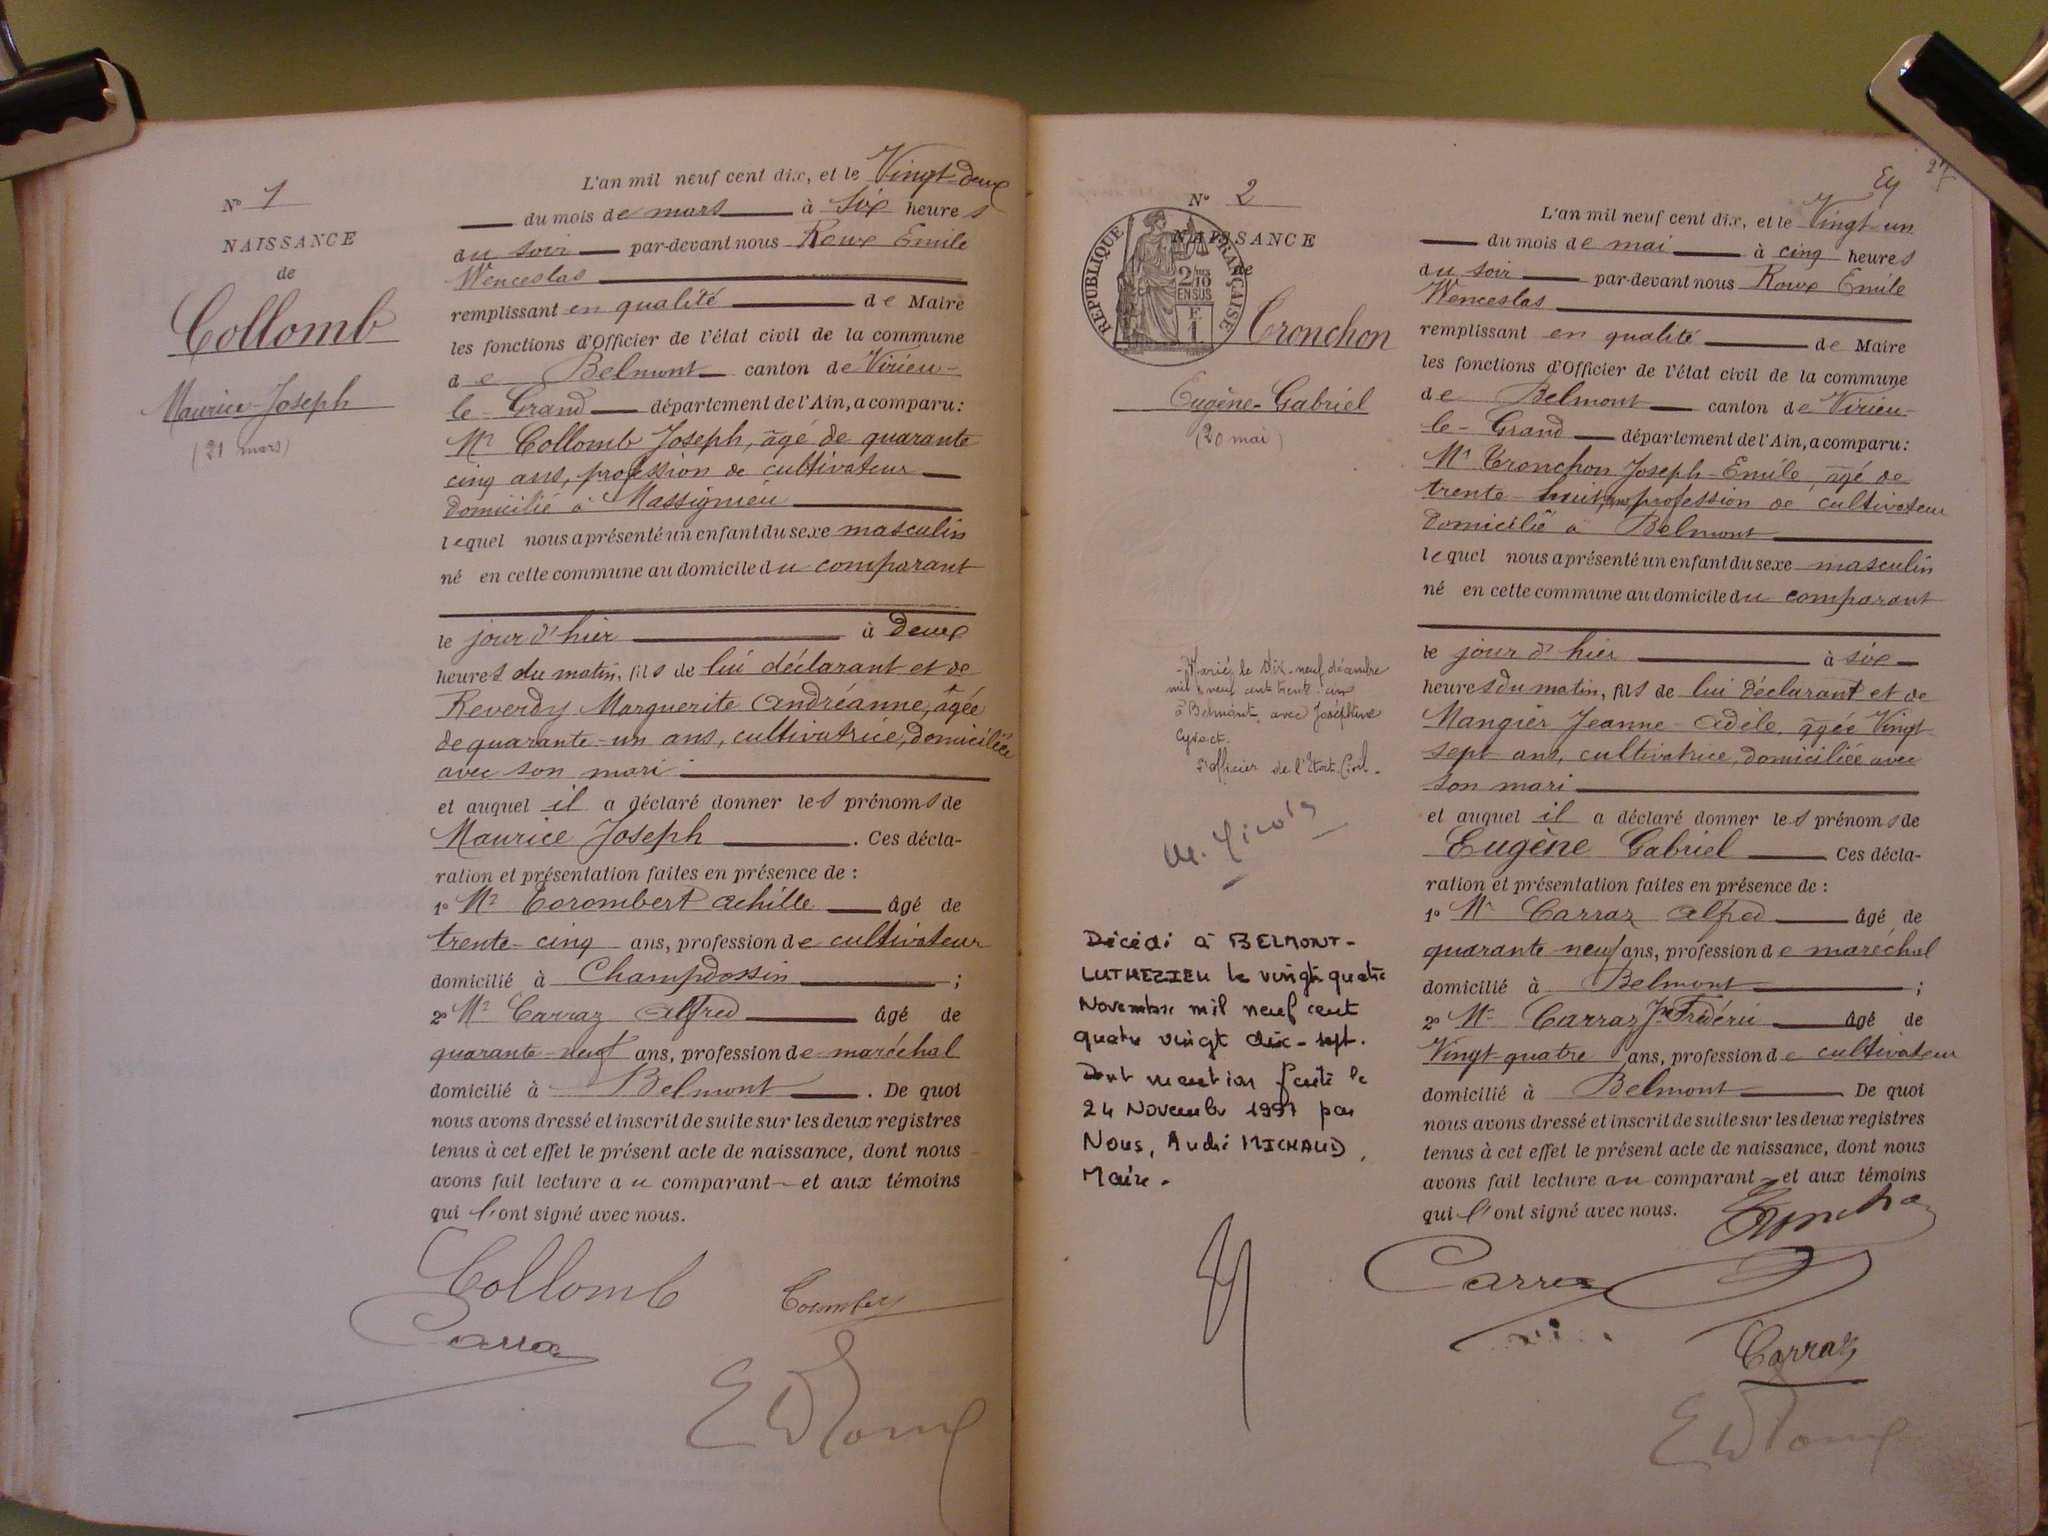 N° 1
NAISSANCE
de
Collomb
Maurice-Joseph
(21 mars)
L'an mil neuf cent dix, et le Vingt-deux
du mois de mars à six heures
du soir par-devant nous Roux Emile
Wenceslas
remplissant en qualité de Maire
les fonctions d'Officier de l'état civil de la commune
de Belmont canton de Virieu-
le-Grand département de l'Ain, a comparu:
Mr Collomb Joseph, âgé de quarante
cinq ans, profession de cultivateur
domicilié à Massignieu
lequel nous a présenté un enfant du sexe masculin
né en cette commune au domicile du comparant
le jour d'hier à Deux
heures du matin, fils de lui déclarant et de
Reverdy Marguerite Andréanne, âgée
de quarante-un ans, cultivatrice, domiciliée
avec son mari
et auquel il a déclaré donner les prénoms de
Maurice Joseph. Ces décla-
ration et présentation faites en présence de :
1° Mr Corombert Achille âgé de
trente-cinq ans, profession de cultivateur
domicilié à Champdossin ;
2° Mr Carraz Alfred âgé de
quarante-neuf ans, profession de maréchal
domicilié à Belmont. De quoi
nous avons dressé et inscrit de suite sur les deux registres
tenus à cet effet le présent acte de naissance, dont nous
avons fait lecture au comparant et aux témoins
qui l'ont signé avec nous.
Collomb
Carraz
N° 2
NAISSANCE
de
RÉPUBLIQUE FRANÇAISE
2/10
EN SUS
F.
1
Tronchon
Eugène-Gabriel
(20 mai)
Marié le dix-neuf décembre
mil neuf cent trente un
à Belmont, avec Joséphine
L'officier de l'Etat-Civil.
Décédé à BELMONT-
LUTHEZIEU le vingt quatre
Novembre mil neuf cent
quatre vingt dix-sept.
Dont mention faite le
24 Novembre 1997 par
Nous, André MICHAUD,
Maire.
27
L'an mil neuf cent dix, et le Vingt-un
du mois de mai à cinq heures
du soir par-devant nous Roux Emile
Wenceslas
remplissant en qualité de Maire
les fonctions d'Officier de l'état civil de la commune
de Belmont canton de Virieu-
le-Grand département de l'Ain, a comparu:
Mr Tronchon Joseph-Emile, âgé de
trente-huit ans profession de cultivateur
domicilié à Belmont
lequel nous a présenté un enfant du sexe masculin
né en cette commune au domicile du comparant
le jour d'hier à six
heures du matin, fils de lui déclarant et de
Mangier Jeanne-Adèle, âgée Vingt
sept ans, cultivatrice, domiciliée avec
son mari
et auquel il a déclaré donner les prénoms de
Eugène Gabriel Ces décla-
ration et présentation faites en présence de :
1° Mr Carraz Alfred âgé de
quarante-neuf ans, profession de maréchal
domicilié à Belmont ;
2° Mr Carraz Jn Frédéric âgé de
Vingt-quatre ans, profession de cultivateur
domicilié à Belmont De quoi
nous avons dressé et inscrit de suite sur les deux registres
tenus à cet effet le présent acte de naissance, dont nous
avons fait lecture au comparant et aux témoins
qui l'ont signé avec nous.
Carraz
Carraz